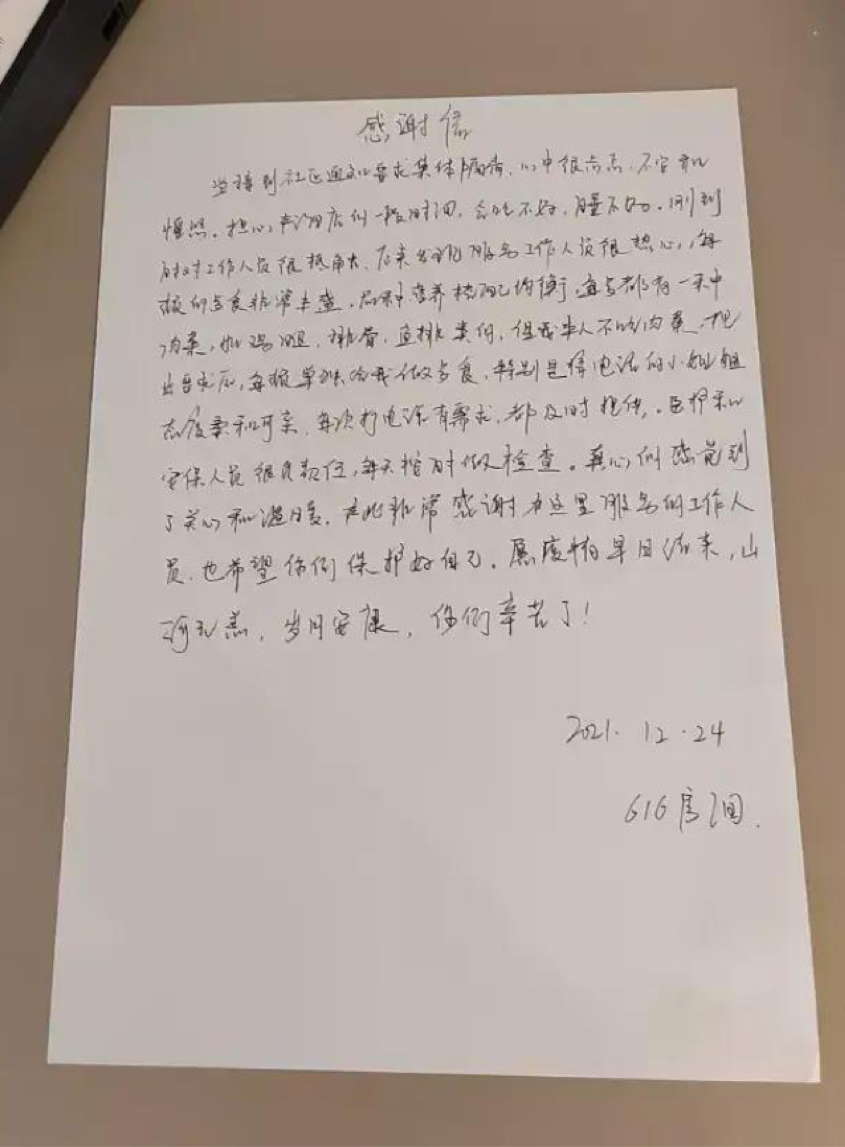 感谢信
当接到社区通知要求集体隔离,心中很忐忑,不安和
惶恐。担心在酒店的一段时间,会吃不好,睡不好。刚到
时对工作人员很抵触,后来发现服务工作人员很热心,每
顿的餐食非常丰盛,品种营养搭配均衡,每餐都有一种
肉菜,如鸡腿,排骨,鱼排类的,但我本人不吃肉菜,提
出要求后,每顿单独给我做餐食,特别是接电话的小姐姐
态度柔和可亲,每次打电话有需求,都及时提供。医护和
安保人员很负责任,每天按时做检查。真心的感觉到
了关心和温暖,在此非常感谢在这里服务的工作人
员,也希望你们保护好自己。愿疫情早日结束,山
河无恙,岁月安康,你们辛苦了!
2021.12.24
616房间.